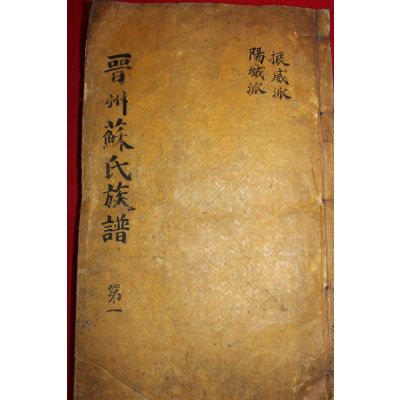 振威派
陽城派
晋州蘇氏族譜
第一